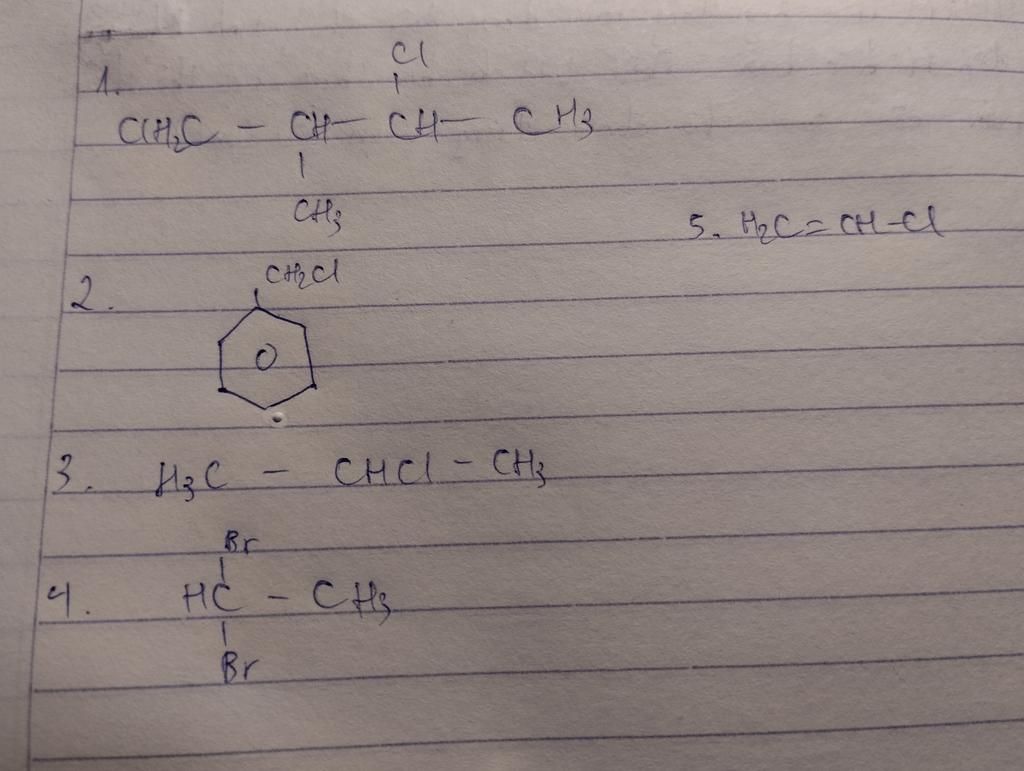 Cl
1.
ClH₂C – CH – CH – CH₃
CH₃
5. H₂C = CH – Cl
CH₂Cl
2.
3. H₃C – CHCl – CH₃
Br
4. HC – CH₃
Br